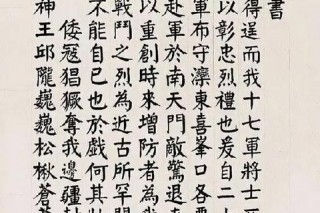 書
得逞而我十七軍將士
以彰忠烈禮也爰自二十
軍布守灤東喜峯口各要
赴軍於南天門敵驚退
以重創時來增防者為我
戰鬥之烈為近古所罕
不能自已也於戲何其
倭寇猖獗奪我邊疆
神王邱隴巍巍松楸蒼